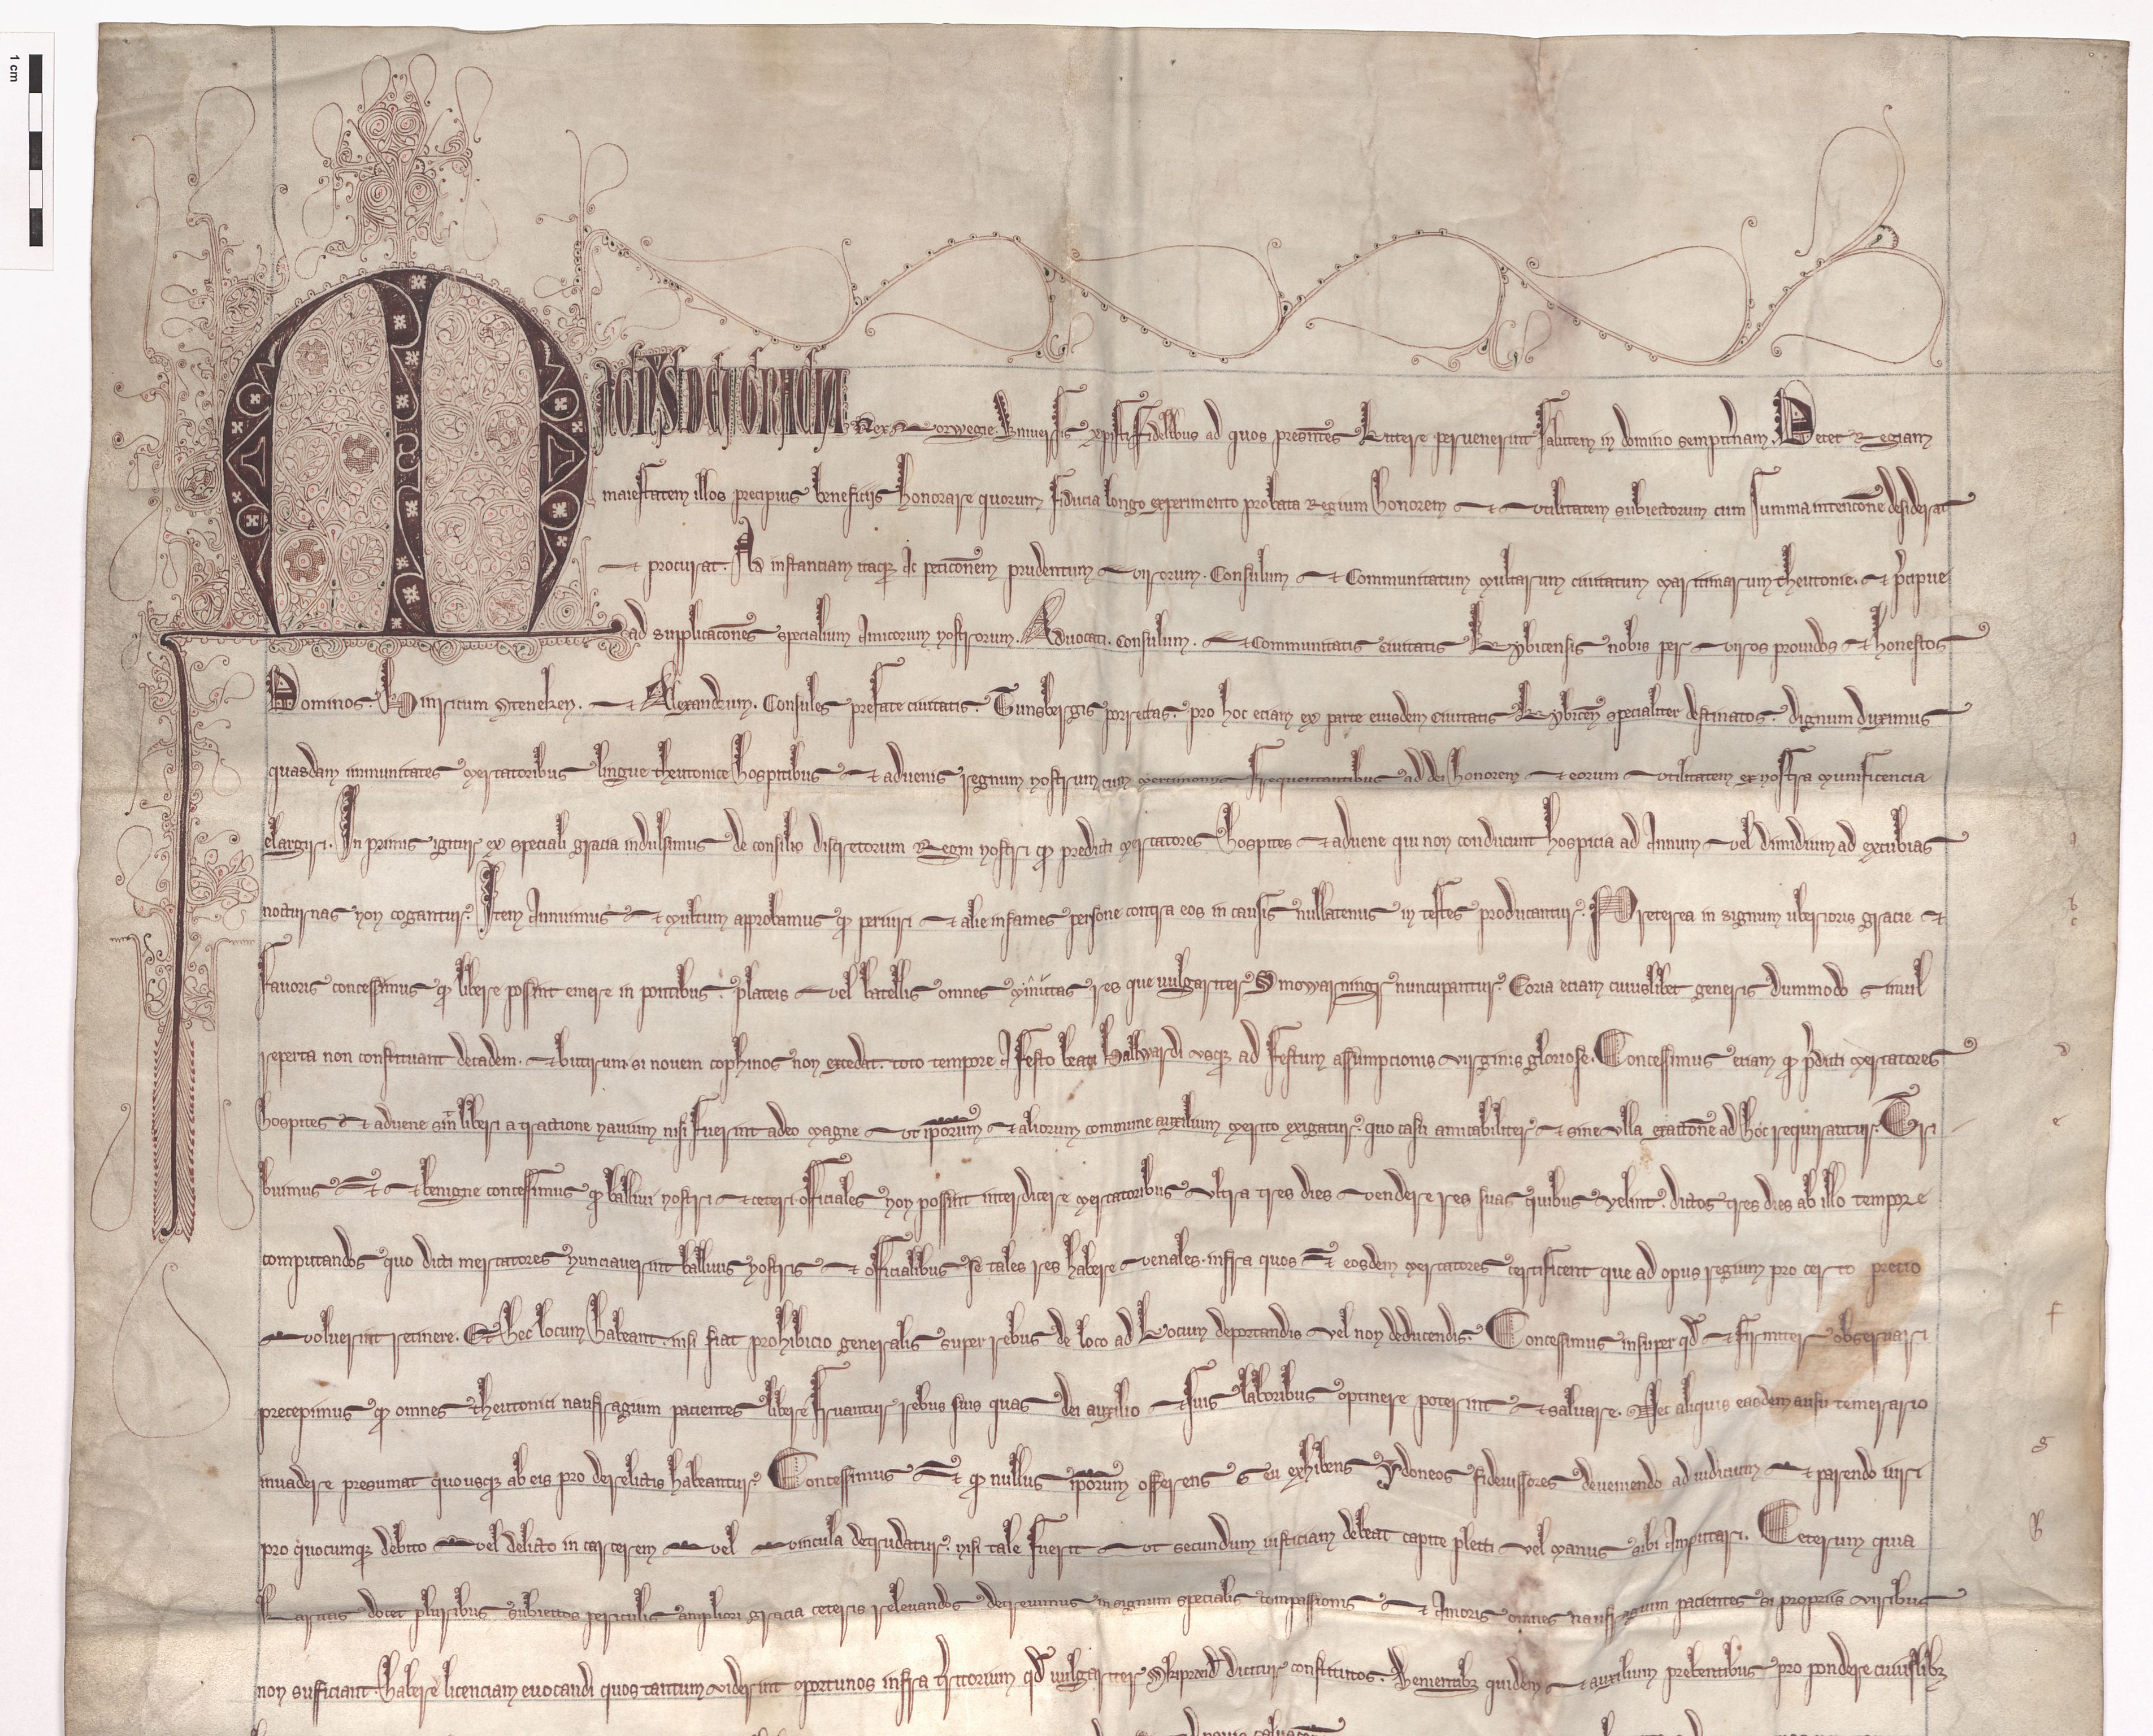 1 cm
MAGNVS DEI GRACIA Rex Norwegie. Vniuersis xpisti fidelibus ad quos presentes Littere peruenerint salutem in domino sempit̉nam. Decet Regiam
maiestatem illos precipuis beneficijs honorare quorum fiducia longo experimento probata Regium honorem et vtilitatem subiectorum cum summa intencōne desiderat
et procurat. Ad instanciam itaqꝫ Ac peticōnem prudentum virorum. Consulum et Communitatum Multarum ciuitatum Maritimarum theutonie. et p̉cipue
ad supplicacōnes specialium Amicorum nostrorum. Aduocati. consulum. et Communitatis ciuitatis Lybicensis nobis per viros prouidos et honestos
Dominos. Hinricum Steneken. et Alexandrum. Consules prefate ciuitatis. Tunsbergis porrectas. pro hoc eciam ex parte eiusdem Ciuitatis Lybicen̄ specialiter destinatos. dignum duximus
quasdam immunitates Mercatoribus lingue theutonice hospitibus et aduenis regnum nostrum cum Mercimonijs frequentantibus ad dei honorem et eorum vtilitatem ex nostra Munificencia
elargiri. In primis igitur ex speciali gracia indulsimus de consilio discretorum Regni nostri qꝫ predicti Mercatores hospites et aduene qui non conducunt hospicia ad Annum vel dimidium ad excubias
nocturnas non cogantur. Item Annuimus et Multum approbamus qꝫ periuri et alie infames persone contra eos in causis nullatenus in testes producantur. Preterea in signum uberioris gracie et
fauoris concessimus qꝫ libere possint emere in pontibus. plateis vel batellis omnes Minutas res que uulgariter Smowarningr nuncupantur. Coria eciam cuiuslibet generis dummodo simul
reperta non constituant decadem. et butirum si nouem cophinos non excedat. toto tempore A festo beati Hallwardi vsqꝫ ad festum assumpcionis virginis gloriose. Concessimus eciam qꝫ p̉dicti Mercatores
hospites et aduene sint liberi a tractione nauium nisi fuerint adeo Magne vt ip̄orum et aliorum commune auxilium Merito exigatur. quo casu amicabiliter et sine vlla exactiōne ad hoc requirantur. Tri
buimus et benigne concessimus qꝫ balliui nostri et ceteri officiales non possint interdicere Mercatoribus vltra tres dies vendere res suas quibus velint. dictos tres dies ab illo tempore
computandos quo dicti mercatores Nunciauerint balliuis nostris et officialibus se tales res habere venales. infra quos eosdem Mercatores certificent que ad opus regium pro certo precio
voluerint retinere. Et hec locum habeant. nisi fiat prohibicio generalis super rebus de loco ad Locum deportandis vel non deducendis. Concessimus insuper qd̄ et firmiter obseruari
precepimus qꝫ omnes theutonici naufragium pacientes libere fruantur rebus suis quas dei auxilio et suis laboribus optinere poterint et saluare. Nec aliquis easdem ausu temerario
inuadere presumat quousqꝫ ab eis pro derelictis habeantur. Concessimus qꝫ nullus ip̄orum offerens seu exhibens ydoneos fideiussores de ueniendo ad iudicium et parendo iuri
pro quocumqꝫ debito vel delicto in carcerem vel vincula detrudatur. nisi tale fuerit vt secundum iusticiam debeat capite plecti vel Manus sibi Amputari. Ceterum quia
Karitas docet pluribus subiectos periculis ampliori gracia ceteris releuandos decreuimus in signum specialis compassionis et Amoris omnes naufragium pacientes si proprijs viribus
non sufficiant. habere licenciam euocandi quos tantum viderint oportunos infra t̉ritorium qd̄ uulgariter Skipreid dicitur constitutos. Venientibꝫ quidem et auxilium prebentibus pro pondere cuiuslibꝫ
b
c
d
e
f
g
h